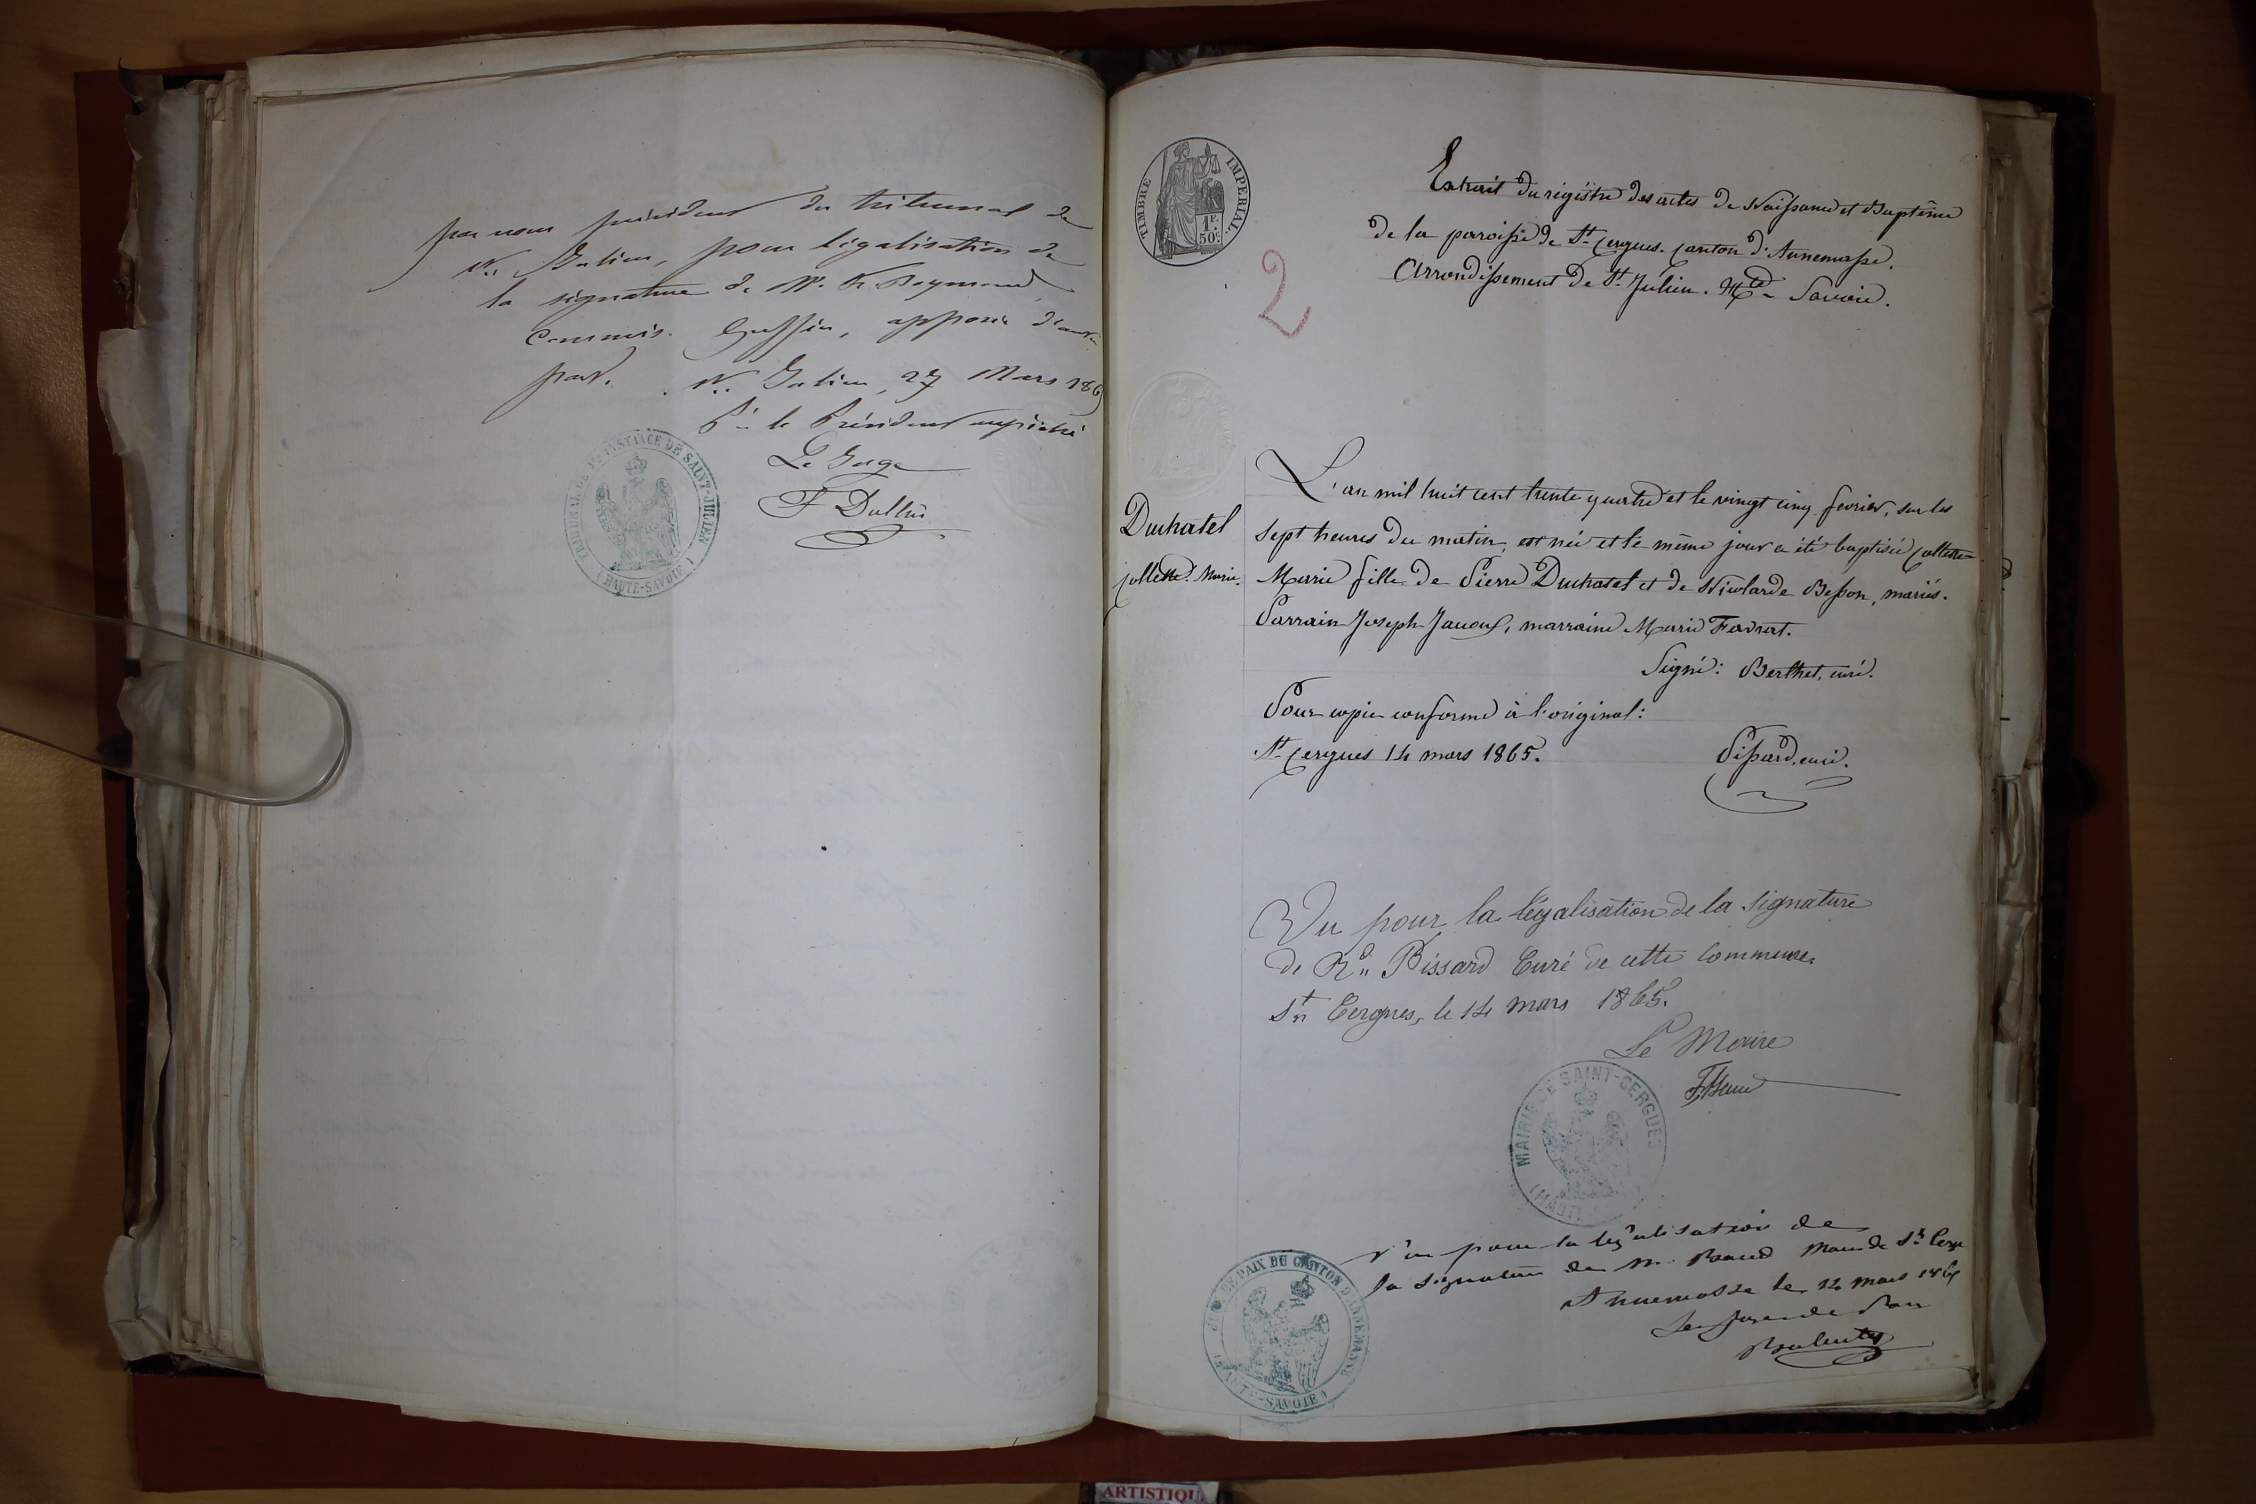 par nous président du tribunal de
St Julien, pour légalisation de
la signature de M. Reymond
commis greffier, apposée d'autre
part. St Julien, 27 Mars 186
Pr le Président empêché
Le Juge
F Dullin
TRIBUNAL DE 1RE INSTANCE DE SAINT-JULIEN
(HAUTE-SAVOIE)
TIMBRE IMPERIAL.
1F.
50C.
2
Extrait du régistre des actes de Naissance et Baptême
de la paroisse de St Cergues. Canton d'Annemasse.
Arrondissement de St Julien. Hte Savoie.
Duchatel
Collette Marie.
L'an mil huit cent trente quatre et le vingt cinq fevrier, sur les
sept heures du matin, est née et le même jour a été baptisée Collette
Marie fille de Pierre Duchatel et de Nicolarde Besson, mariés.
Parrain Joseph Jacoux, marraine Marie Favrat.
Signé: Berthet, curé.
Pour copie conforme à l'original:
St Cergues 14 mars 1865.
Pissard, curé.
Vu pour la légalisation de la signature
de Rd Pissard Curé de cette commune
St Cergues, le 14 mars 1865.
Le Maire
MAIRIE DE SAINT-CERGUES
Vu pour la légalisation de
la signature de M. Baud Maire de St Cergu
Annemasse le mars 1865
Le juge de Paix
JUSTICE DE PAIX DU CANTON D'ANNEMASSE
(HAUTE-SAVOIE)
ARTISTIQU